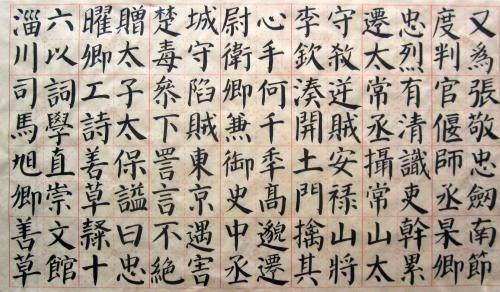 又為張敬忠劔南節
度判官偃師丞杲卿
忠烈有清識吏幹累
遷太常丞攝常山太
守殺逆賊安禄山將
李欽湊開土門擒其
心手何千秊高邈遷
尉衛卿兼御史中丞
城守陷賊東京遇害
楚毒叅下詈言不絕
贈太子太保謚曰忠
曜卿工詩善草隸十
六以詞學直崇文館
淄川司馬旭卿善草